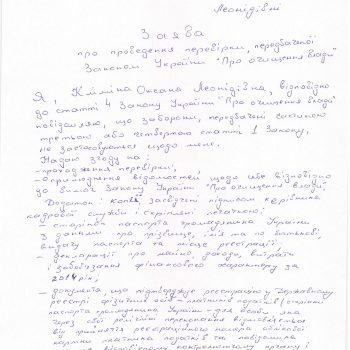 Леонідівні
Заява
про проведення перевірки, передбаченої
Законом України "Про очищення влади"
Я, Кліміна Оксана Леонідівна, відповідно
до статті 4 Закону України "Про очищення влади"
повідомляю, що заборони, передбачені частиною
третьою або четвертою статті 1 Закону,
не застосовуються щодо мене.
Надаю згоду на:
- проходження перевірки;
- оприлюднення відомостей щодо себе відповідно
до вимог Закону України "Про очищення влади".
Додаток: копії, засвідчені підписом керівника
кадрової служби і скріплені печаткою:
- сторінок паспорта громадянина України
з даними про прізвище, ім'я та по батькові,
видачу паспорта та місце реєстрації;
- декларації про майно, доходи, витрати
і зобов'язання фінансового характеру за
2014 рік;
- документа, що підтверджує реєстрацію у Державному
реєстрі фізичних осіб - платників податків (сторінки
паспорта громадянина України - для особи, яка
через свої релігійні переконання відмовляється
від прийняття реєстраційного номера облікової
картки платника податків та повідомила
про це відповідному контролюючому органу і